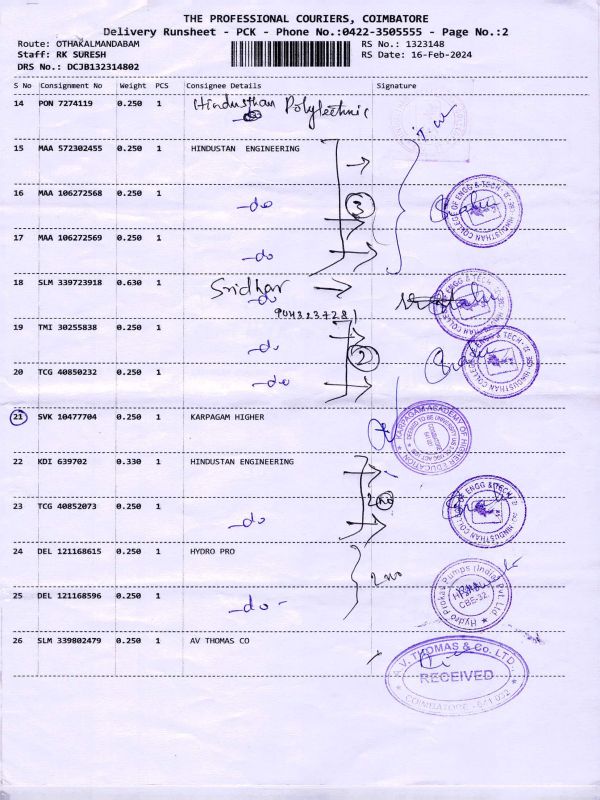 THE PROFESSIONAL COURIERS, COIMBATORE
Delivery Runsheet - PCK - Phone No.:0422-3505555 - Page No.:2
Route: OTHAKALMANDABAM RS No.: 1323148
Staff: RK SURESH RS Date: 16-Feb-2024
DRS No.: DCJB132314802
S No Consignment No Weight PCS Consignee Details Signature
14 PON 7274119 0.250 1 Hindusthan Polytechnic
15 MAA 572302455 0.250 1 HINDUSTAN ENGINEERING
16 MAA 106272568 0.250 1 -do 3
17 MAA 106272569 0.250 1 -do
18 SLM 339723918 0.630 1 Sridhar
-do
9043237281
19 TMI 30255838 0.250 1 -do 2
20 TCG 40850232 0.250 1 -do
21 SVK 10477704 0.250 1 KARPAGAM HIGHER
KARPAGAM ACADEMY OF HIGHER EDUCATION
22 KDI 639702 0.330 1 HINDUSTAN ENGINEERING
2 no
23 TCG 40852073 0.250 1 -do
24 DEL 121168615 0.250 1 HYDRO PRO
2 no
25 DEL 121168596 0.250 1 -do-
Hydro Prokav Pumps (India) Pvt. Ltd
CBE-32
26 SLM 339802479 0.250 1 AV THOMAS CO
A.V. THOMAS & Co. LTD.,
RECEIVED
COIMBATORE - 641 032